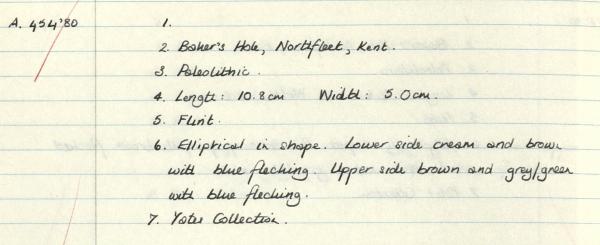 A. 454'80 1.
2. Baker's Hole, Northfleet, Kent.
3. Paleolithic.
4. Length: 10.8cm Width: 5.0cm.
5. Flint.
6. Elliptical in shape. Lower side cream and brown
with blue flecking. Upper side brown and grey/green
with blue flecking.
7. Yates Collection.